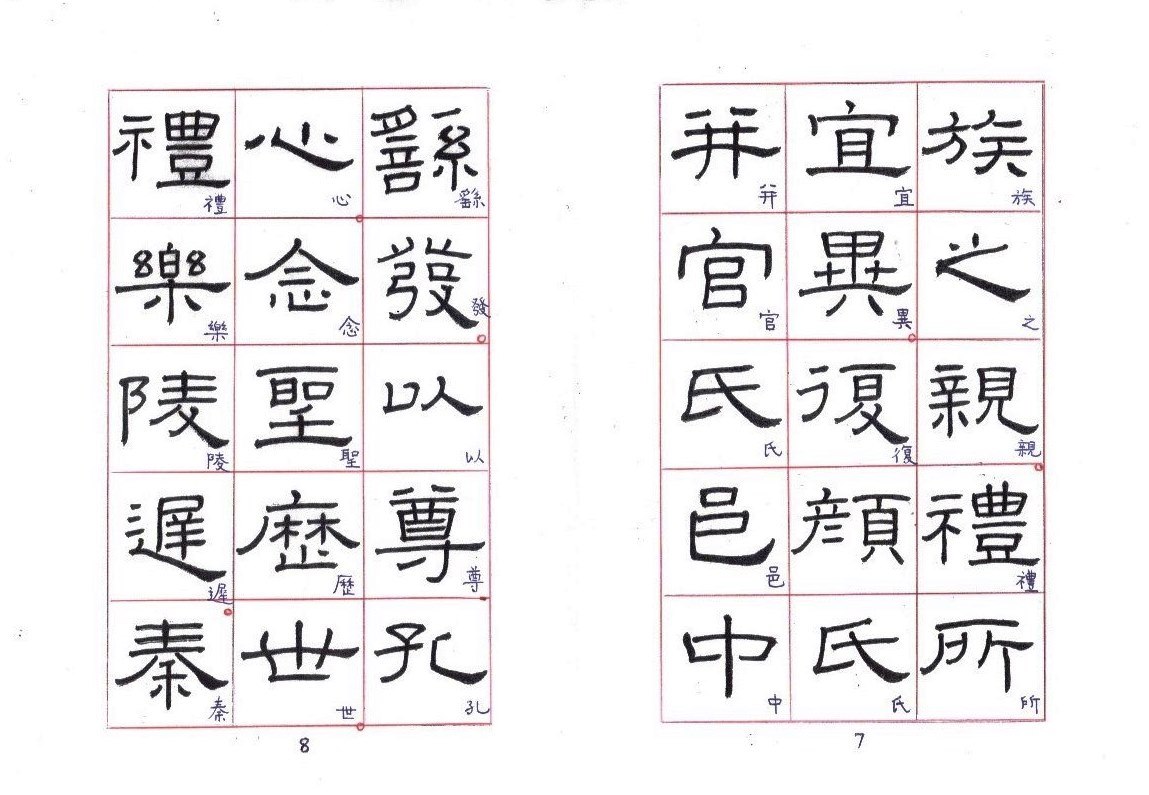 族之親禮所
族之親禮所
宜異復顏氏
宜異復顏氏
并官氏邑中
并官氏邑中
7
繇發以尊孔
繇發以尊孔
心念聖歷世
心念聖歷世
禮樂陵遲秦
禮樂陵遲秦
8